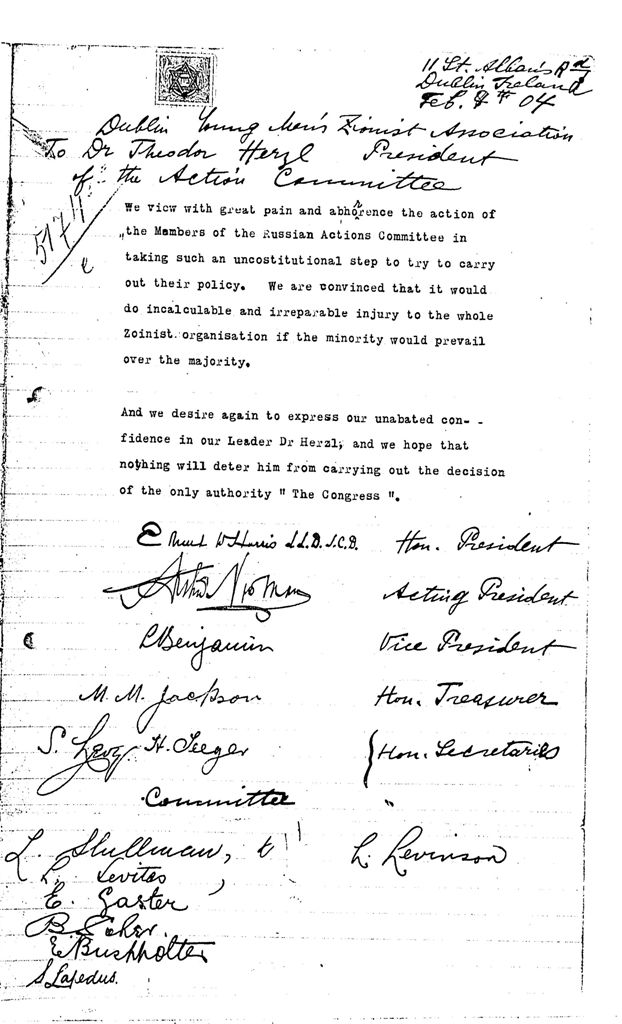 11 St. Alban's Rd
Dublin Ireland
Feb. 8th 04
Dublin Young Men's Zionist Association
To Dr Theodor Herzl President
of the Action Committee
5174
We view with great pain and abhorence the action of
the Members of the Russian Actions Committee in
taking such an uncostitutional step to try to carry
out their policy. We are convinced that it would
do incalculable and irreparable injury to the whole
Zoinist.organisation if the minority would prevail
over the majority.
And we desire again to express our unabated con- -
fidence in our Leader Dr Herzl, and we hope that
nothing will deter him from carrying out the decision
of the only authority " The Congress ".
W Harris LL.D. J.C.D. Hon. President
Arthur Newman Acting President
L Benjamin Vice President
M. M. Jackson Hon. Treasurer
S. Levy. H. Seeger Hon. Secretaries
Committee "
L. Shillman, L. Levinson
L. Levitas
E. Gaster
B
E. Buchholter
S Lapedus.